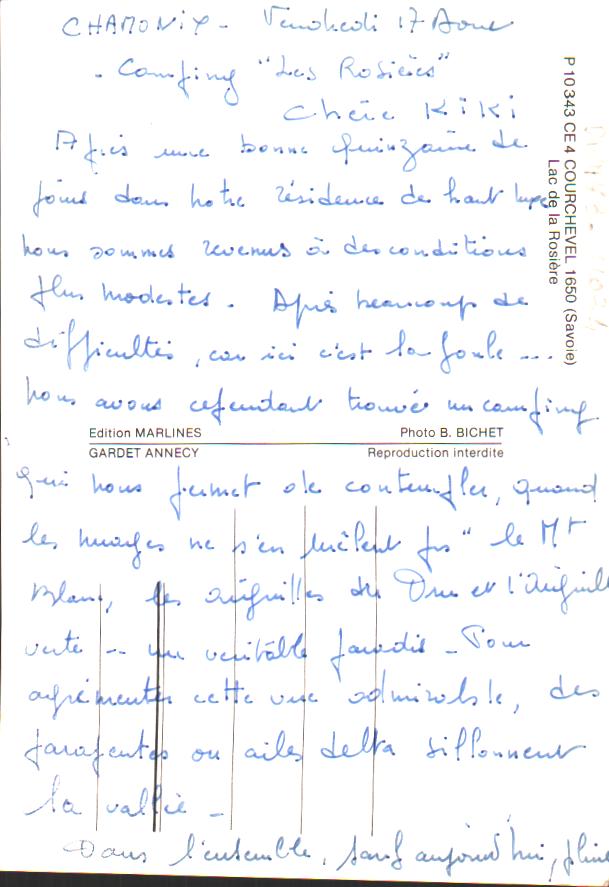 CHAMONIX - Vendredi 17 Août
- Camping "Les Rosières"
Chère KiKi
Après une bonne quinzaine de
jours dans notre résidence de haut luxe
nous sommes revenus à des conditions
plus modestes. Après beaucoup de
difficultés, car ici c'est la foule ...
nous avons cependant trouvé un camping
qui nous permet de contempler, quand
les nuages ne s'en mêlent pas " le Mt
Blanc, les aiguilles du Dru et l'Aiguille
verte -- un véritable paradis - Pour
agrémenter cette vue admirable, des
parapentes ou ailes delta sillonnent
la vallée -
Dans l'ensemble, sauf aujourd'hui, pluie
P 10 343 CE 4 COURCHEVEL 1650 (Savoie)
Lac de la Rosière
Edition MARLINES
Photo B. BICHET
GARDET ANNECY
Reproduction interdite